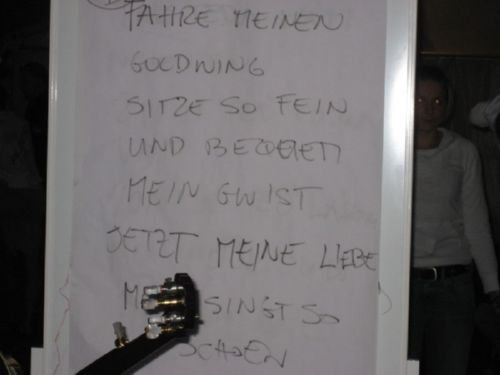 FAHRE MEINEN
GOLDWING
SITZE SO FEIN
UND BEQEEM
MEIN GW IST
JETZT MEINE LIEBE
SINGT SO
SCHOEN